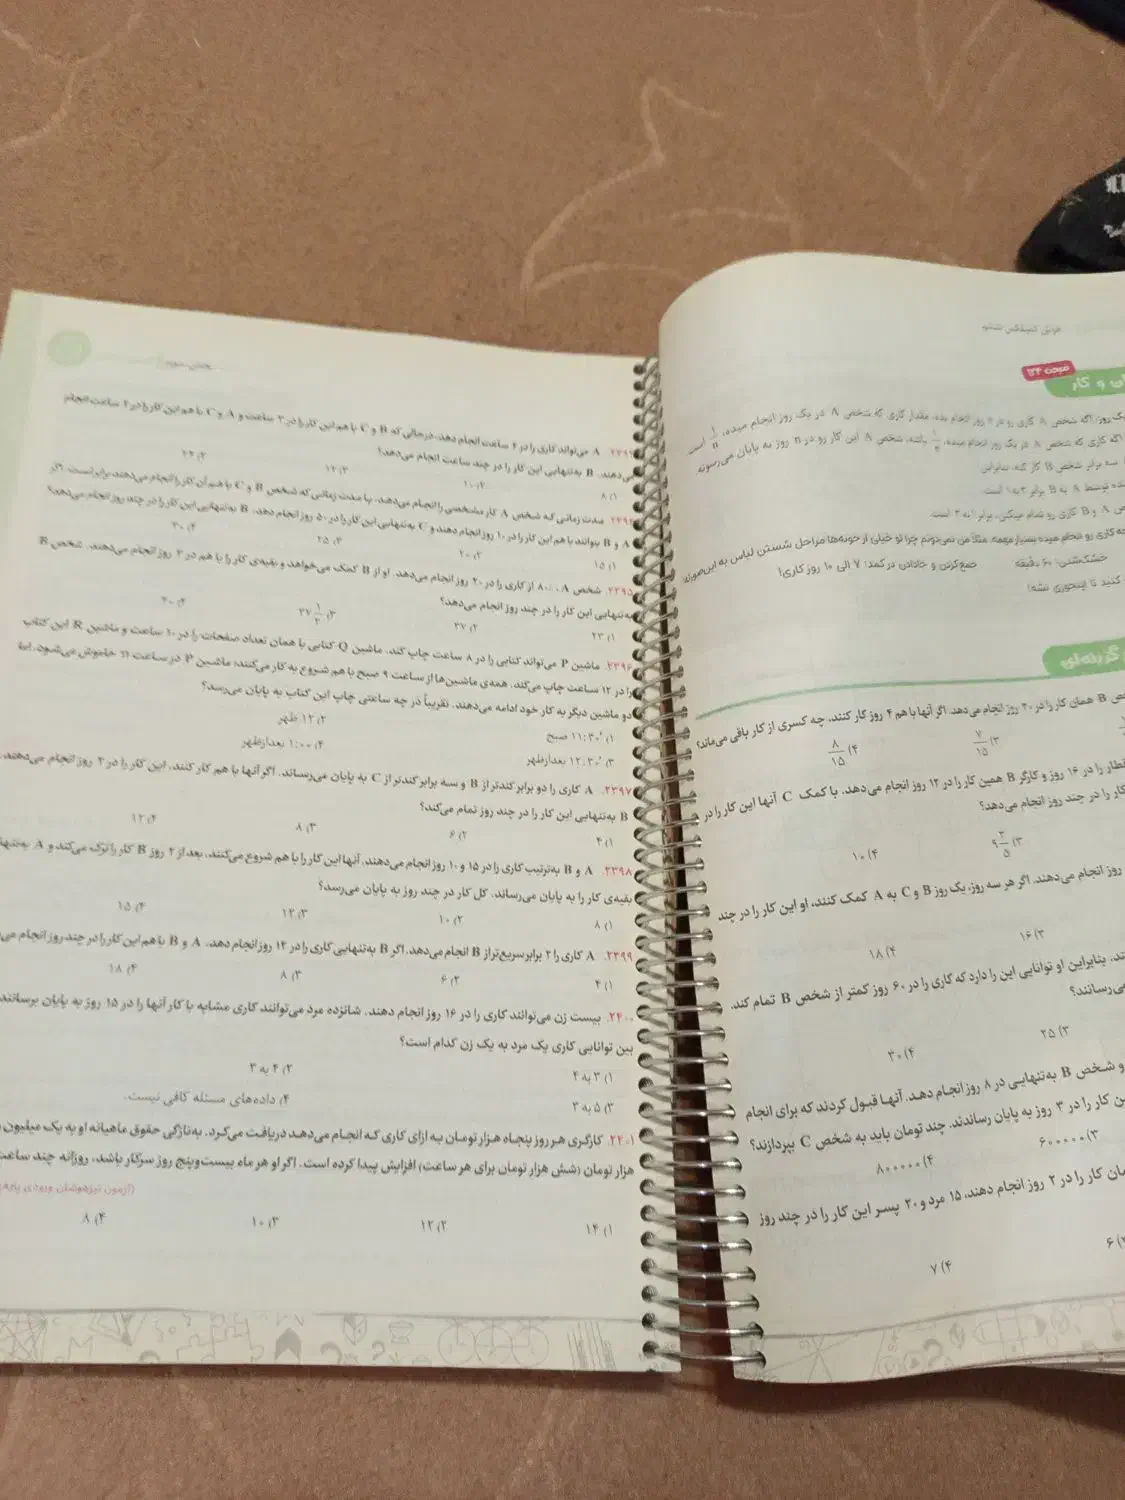 فرش کمپلکس ششم
صفحه ۱۲۴
ان و کار
یک روز: اگه شخص A کاری رو در n روز انجام بده، مقدار کاری که شخص A در یک روز انجام میده، ۱/n است
اگه کاری که شخص A در یک روز انجام میده، ۱/n باشه، شخص A این کار رو در n روز به پایان می‌رسونه
سه برابر شخص B کار کنه، بنابراین
شده توسط A به B برابر ۳ به ۱ است.
ص A و B کاری رو تمام میکنن، برابر ۱ به ۳ است.
چه کاری رو انجام میده بسیار مهمه. مثلاً من نمی‌دونم چرا تو خیلی از خونه‌ها مراحل شستن لباس به این‌صورته:
خشک‌شدن: ۶۰ دقیقه جمع‌کردن و جادادن در کمد: ۷ الی ۱۰ روز کاری!
کنید تا اینجوری نشه!
گزینه‌ای
ص B همان کار را در ۲۰ روز انجام می‌دهد. اگر آنها با هم ۴ روز کار کنند، چه کسری از کار باقی می‌ماند؟
۳) ۷/۱۵ ۴) ۸/۱۵
قطار را در ۱۶ روز و کارگر B همین کار را در ۱۲ روز انجام می‌دهد. با کمک C آنها این کار را در
کار را در چند روز انجام می‌دهد؟
۳) ۹ ۳/۵ ۴) ۱۰
روز انجام می‌دهند. اگر هر سه روز، یک روز B و C به A کمک کنند، او این کار را در چند
۳) ۱۶ ۴) ۱۸
ند. بنابراین او توانایی این را دارد که کاری را در ۶۰ روز کمتر از شخص B تمام کند.
می‌رسانند؟
۳) ۲۵ ۴) ۳۰
و شخص B به‌تنهایی در ۸ روز انجام دهد. آنها قبول کردند که برای انجام
ین کار را در ۳ روز به پایان رساندند. چند تومان باید به شخص C بپردازند؟
۳) ۶۰۰۰۰۰ ۴) ۸۰۰۰۰۰
مان کار را در ۲ روز انجام دهند، ۱۵ مرد و ۲۰ پسر این کار را در چند روز
۶ ۴) ۷
بخش سوم
A می‌تواند کاری را در ۴ ساعت انجام دهد، درحالی که B و C با هم این کار را در ۳ ساعت و A و C با هم این کار را در ۲ ساعت انجام
می‌دهند. B به‌تنهایی این کار را در چند ساعت انجام می‌دهد؟
۱) ۸ ۲) ۱۰ ۳) ۱۲ ۴) ۲۴
۲۳۹۴. مدت زمانی که شخص A کار مشخصی را انجام می‌دهد، با مدت زمانی که شخص B و C با هم آن کار را انجام می‌دهند برابر است. اگر
A و B بتوانند با هم این کار را در ۱۰ روز انجام دهند و C به‌تنهایی این کار را در ۵۰ روز انجام دهد، B به‌تنهایی این کار را در چند روز انجام می‌دهد؟
۱) ۱۵ ۲) ۲۰ ۳) ۲۵ ۴) ۳۰
۲۳۹۵. شخص A، ۸۰٪ از کاری را در ۲۰ روز انجام می‌دهد. او از B کمک می‌خواهد و بقیه‌ی کار را با هم در ۳ روز انجام می‌دهند. شخص B
به‌تنهایی این کار را در چند روز انجام می‌دهد؟
۱) ۲۳ ۲) ۳۷ ۳) ۳۷ ۱/۲ ۴) ۴۰
۲۳۹۶. ماشین P می‌تواند کتابی را در ۸ ساعت چاپ کند. ماشین Q کتابی با همان تعداد صفحات را در ۱۰ ساعت و ماشین R این کتاب
را در ۱۲ ساعت چاپ می‌کند. همه‌ی ماشین‌ها از ساعت ۹ صبح با هم شروع به کار می‌کنند، ماشین P در ساعت ۱۱ خاموش می‌شود. اما
دو ماشین دیگر به کار خود ادامه می‌دهند. تقریباً در چه ساعتی چاپ این کتاب به پایان می‌رسد؟
۱) ۱۱:۳۰ صبح ۲) ۱۲ ظهر
۳) ۱۲:۳۰ بعدازظهر ۴) ۱:۰۰ بعدازظهر
۲۳۹۷. A کاری را دو برابر کندتر از B و سه برابر کندتر از C به پایان می‌رساند. اگر آنها با هم کار کنند، این کار را در ۲ روز انجام می‌دهند.
B به‌تنهایی این کار را در چند روز تمام می‌کند؟
۱) ۴ ۲) ۶ ۳) ۸ ۴) ۱۲
۲۳۹۸. A و B به‌ترتیب کاری را در ۱۵ و ۱۰ روز انجام می‌دهند. آنها این کار را با هم شروع می‌کنند. بعد از ۲ روز B کار را ترک می‌کند و A به‌تنها
بقیه‌ی کار را به پایان می‌رساند. کل کار در چند روز به پایان می‌رسد؟
۱) ۸ ۲) ۱۰ ۳) ۱۲ ۴) ۱۵
۲۳۹۹. A کاری را ۲ برابر سریع‌تر از B انجام می‌دهد. اگر B به‌تنهایی کاری را در ۱۲ روز انجام دهد، A و B با هم این کار را در چند روز انجام می
۱) ۴ ۲) ۶ ۳) ۸ ۴) ۱۸
۲۴۰۰. بیست زن می‌توانند کاری را در ۱۶ روز انجام دهند. شانزده مرد می‌توانند کاری مشابه با کار آنها را در ۱۵ روز به پایان برسانند
بین توانایی کاری یک مرد به یک زن کدام است؟
۱) ۳ به ۴ ۲) ۴ به ۳
۳) ۵ به ۳ ۴) داده‌های مسئله کافی نیست.
۲۴۰۱. کارگری هر روز پنجاه هزار تومان به ازای کاری که انجام می‌دهد دریافت می‌کرد. به‌تازگی حقوق ماهیانه او به یک میلیون
هزار تومان (شش هزار تومان برای هر ساعت) افزایش پیدا کرده است. اگر او هر ماه بیست‌وپنج روز سرکار باشد، روزانه چند ساعت
(آزمون تیزهوشان ورودی پایه
۱) ۱۴ ۲) ۱۲ ۳) ۱۰ ۴) ۸